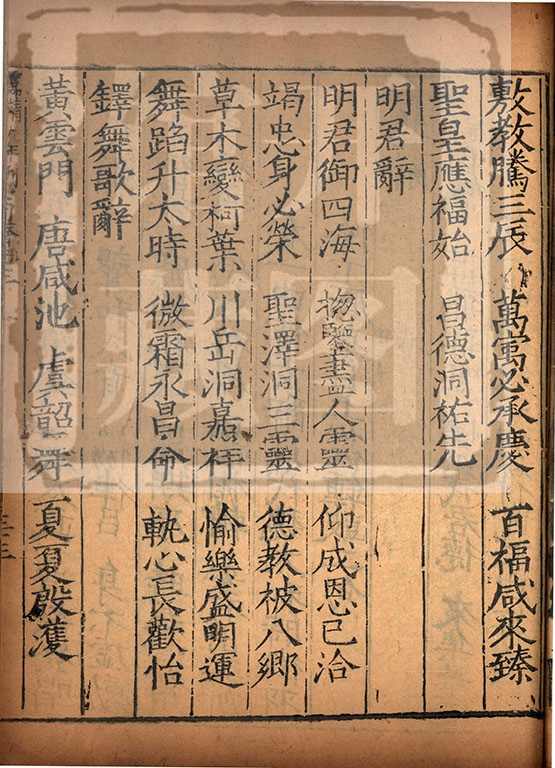 敷教騰三辰　萬寓必承慶　百福咸來臻
聖皇應福始　昌德洞祐先
明君辭
明君御四海　揔鑒盡人靈　仰成恩已洽
竭忠身必榮　聖澤洞三靈　德教被八鄉
草木變柯葉　川岳洞嘉祥　愉樂盛明運
舞蹈升太時　微霜永昌命　軌心長歡怡
鐸舞歌辭
黃雲門　唐咸池　虞韶舞　夏夏殷濩